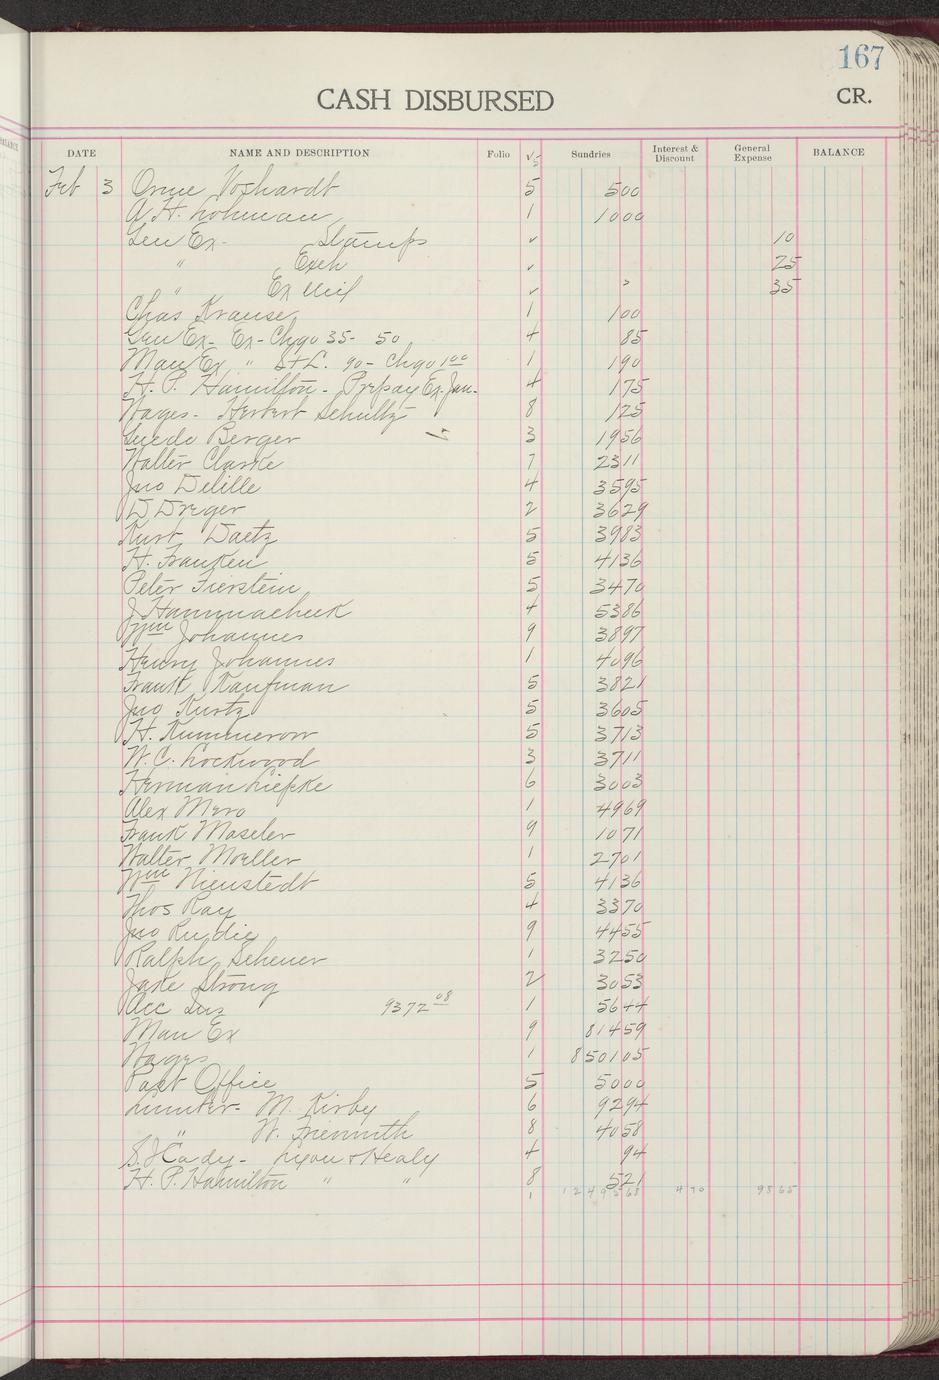 167
CASH DISBURSED
CR.
DATE NAME AND DESCRIPTION Folio ✓ Sundries Interest & Discount General Expense BALANCE
Feb 3 Orme Voshardt 5 500
A H. Lohman 1 1000
Gen Ex- Stamps ✓ 10
" Exch ✓ 25
" Ex ✓ 35
Chas Krause 1 100
Gen Ex- Ex- Chgo 35- 50 4 85
Man Ex " St L. 90- Chgo 1 00 1 190
H. P. Hamilton- Prepay Ex. Jan. 4 175
Wages- Herbert Schultz 8 125
Guedo Berger 3 1956
Walter Clarke 7 2311
Jno Delille 4 3595
D Dreger 2 3629
Kurt Daetz 5 3983
H. Franken 5 4136
Peter Fierstein 5 3470
J Hammacheck 4 5386
Wm Johannes 9 3897
Henry Johannes 1 4096
Frank Kaufman 5 3821
Jno Kurtz 5 3605
H. Kummerow 5 3713
W. C. Lockwood 3 3711
Herman Liefke 6 3003
Alex Mero 1 4969
Frank Maseler 9 1071
Walter Moeller 1 2701
Wm Nienstedt 5 4136
Thos Ray 4 3370
Jno Rudie 9 4455
Ralph Scheuer 1 3250
Jake Strong 2 3053
Acc Ins 9372 08 1 5644
Man Ex 9 81459
Wages 1 850105
Post Office 5 5000
Lumber- M. Kirby 6 9294
" W. Friemuth 8 4058
S. J Cady- Lyon & Healy 4 94
H. P. Hamilton " " 8 521
1 1249568 470 9865